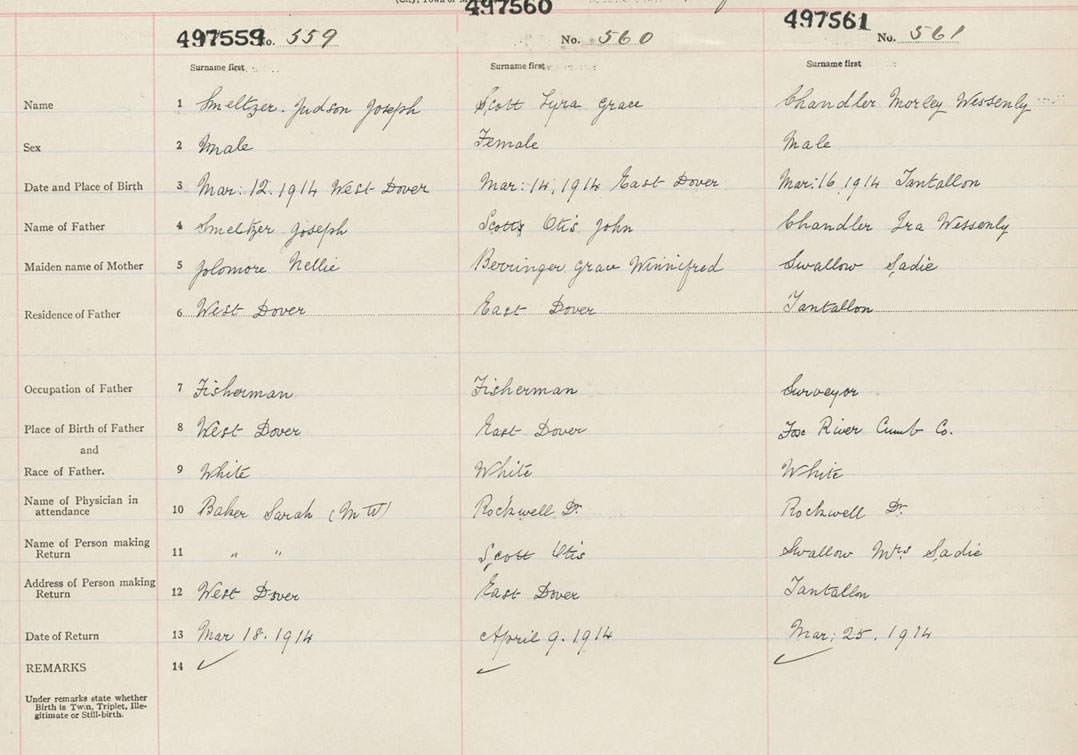 (City, Town or
497559 No. 559 497560 No. 560 497561 No. 561
Surname first Surname first Surname first
Name 1 Smeltzer. Judson Joseph Scott Lyra Grace Chandler Morley Wessenly
Sex 2 Male Female Male
Date and Place of Birth 3 Mar: 12. 1914 West Dover Mar: 14, 1914 East Dover Mar: 16, 1914 Tantallon
Name of Father 4 Smeltzer Joseph Scott Otis John Chandler Ira Wessenly
Maiden name of Mother 5 Jolomore Nellie Berringer Grace Winnifred Swallow Sadie
Residence of Father 6 West Dover East Dover Tantallon
Occupation of Father 7 Fisherman Fisherman Surveyor
Place of Birth of Father 8 West Dover East Dover Fox River Cumb Co.
and
Race of Father. 9 White White White
Name of Physician in
attendance 10 Baker Sarah (M W) Rockwell Dr. Rockwell Dr.
Name of Person making
Return 11 " " Scott Otis Swallow Mrs Sadie
Address of Person making
Return 12 West Dover East Dover Tantallon
Date of Return 13 Mar 18. 1914 April 9. 1914 Mar: 25. 1914
REMARKS 14 ✓ ✓ ✓
Under remarks state whether
Birth is Twin, Triplet, Ille-
gitimate or Still-birth.